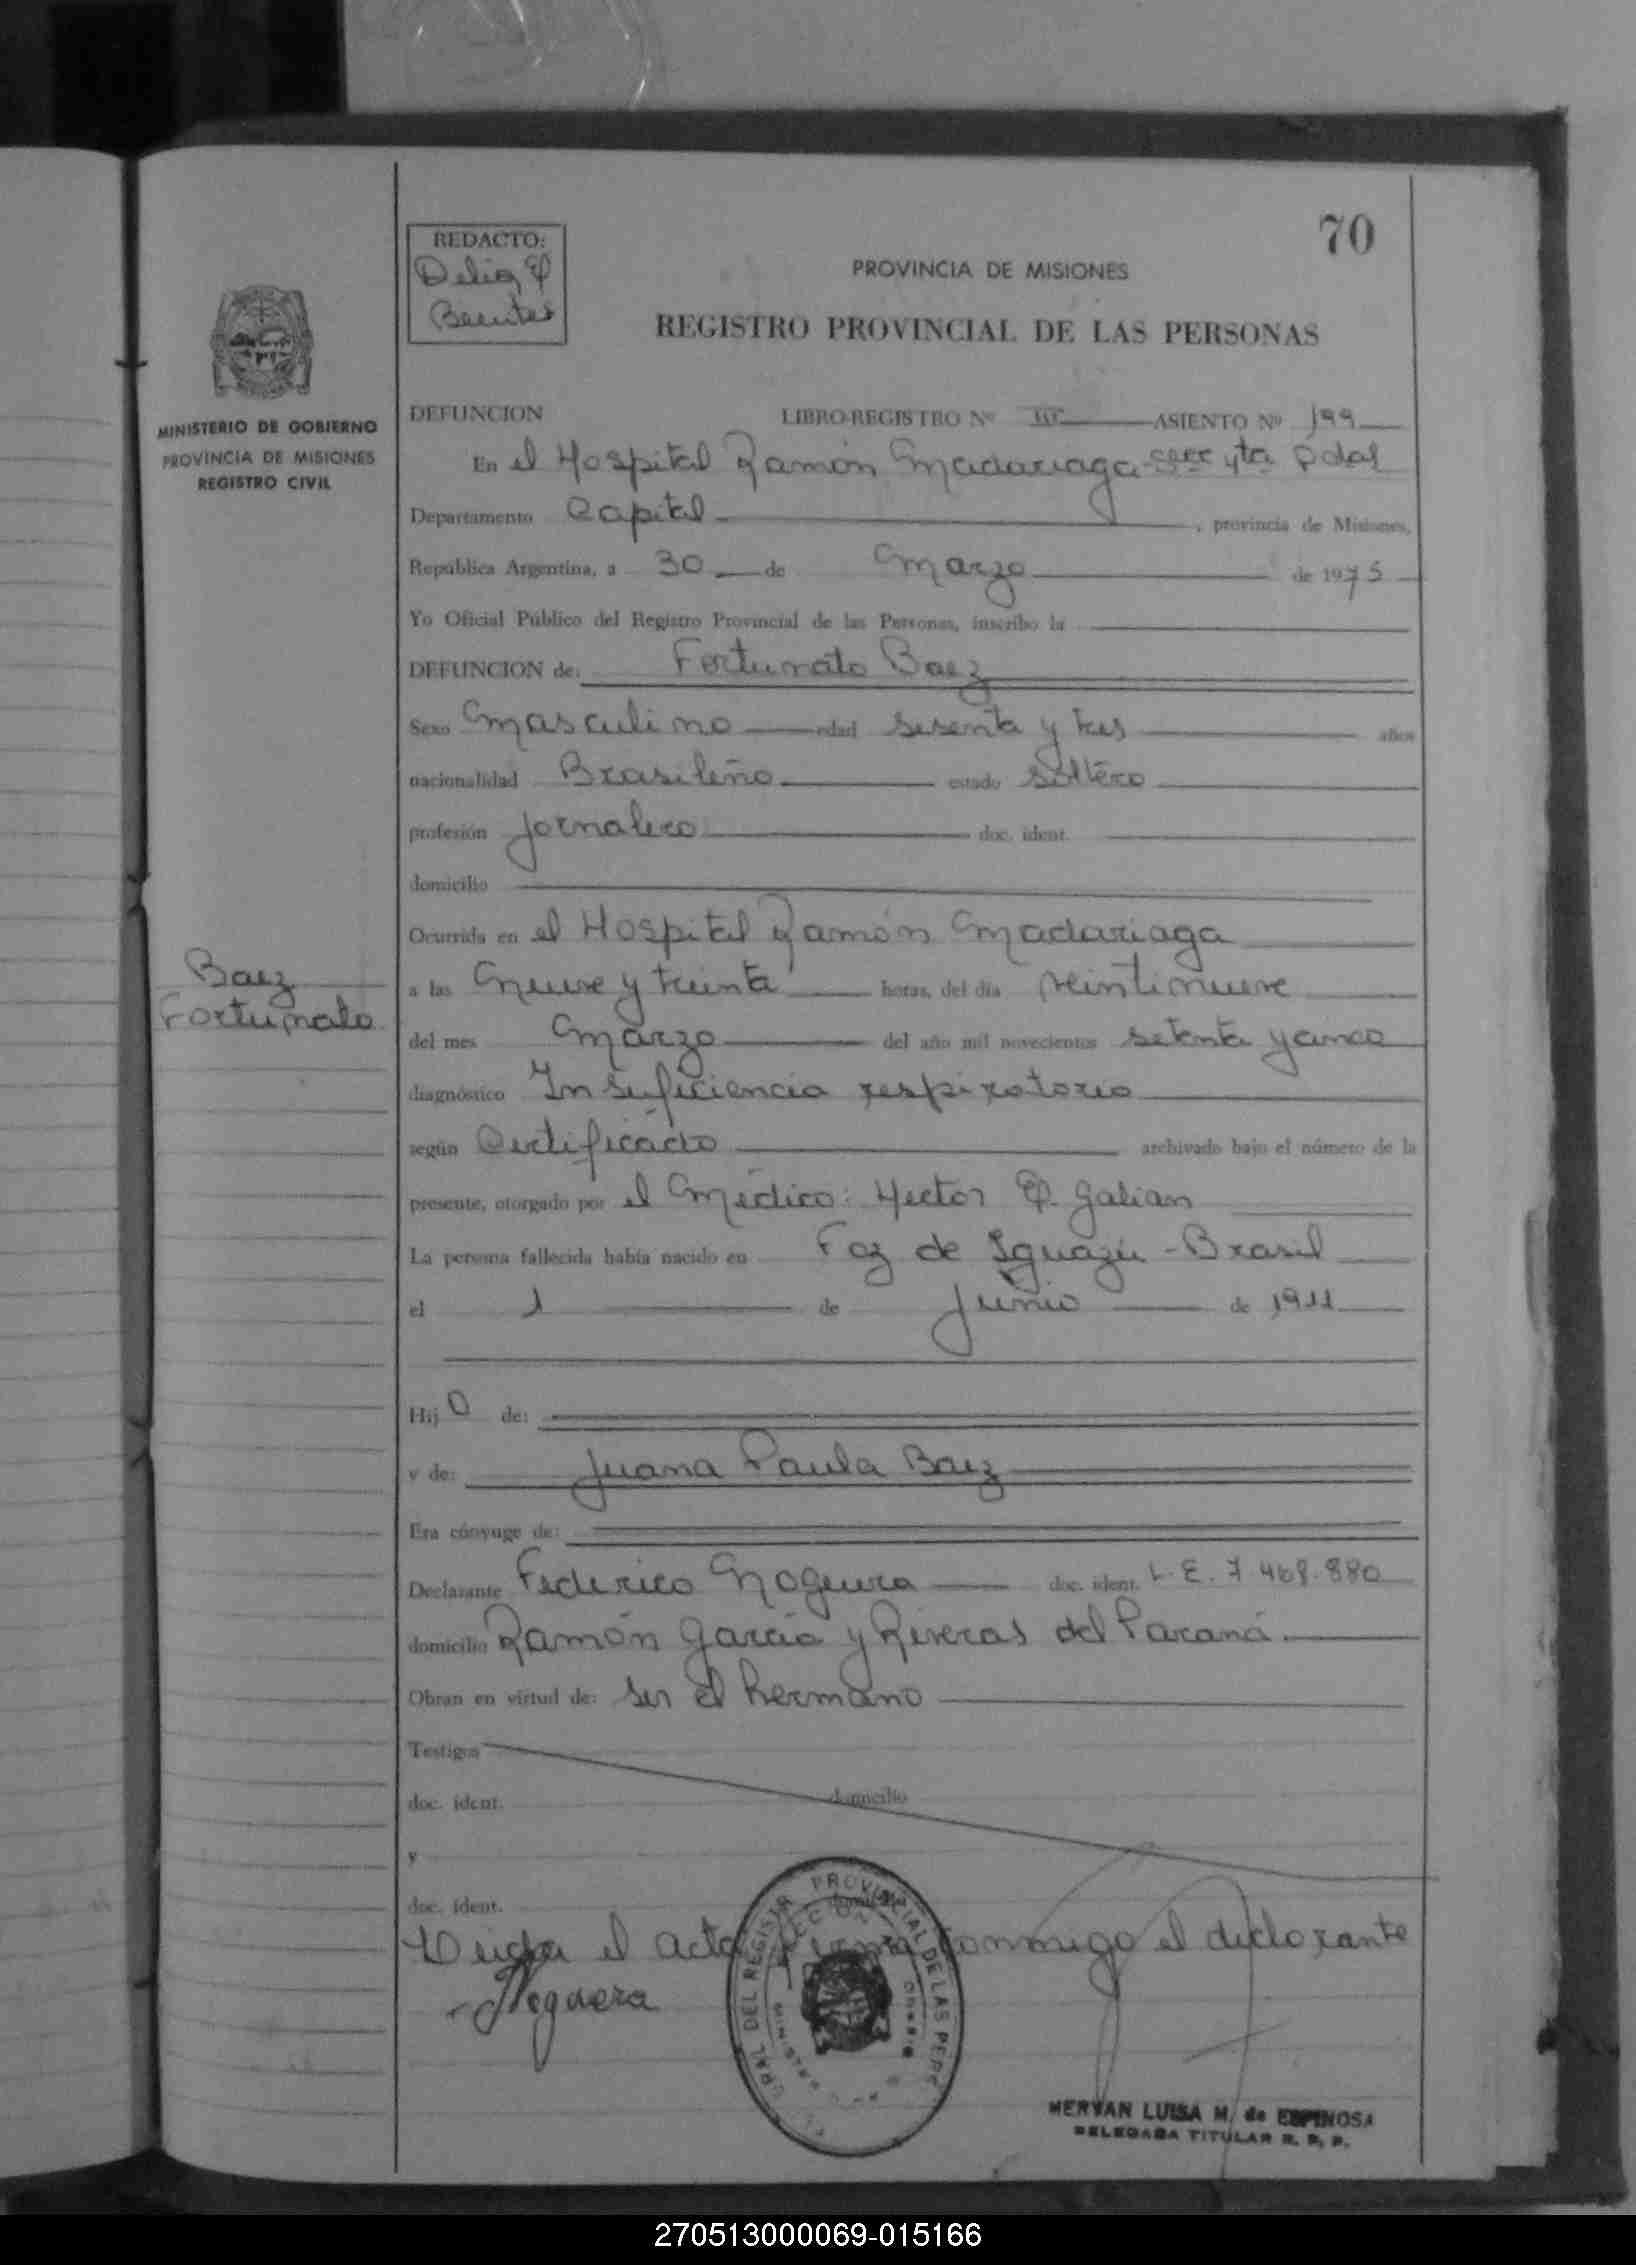 70
REDACTO:
Delia E.
PROVINCIA DE MISIONES
REGISTRO PROVINCIAL DE LAS PERSONAS
MINISTERIO DE GOBIERNO
PROVINCIA DE MISIONES
REGISTRO CIVIL
DEFUNCION LIBRO-REGISTRO Nº III ASIENTO Nº 199
En el Hospital Ramón Madariaga
Departamento Capital, provincia de Misiones,
República Argentina, a 30 de Marzo de 1975
Yo Oficial Público del Registro Provincial de las Personas, inscribo la
DEFUNCION de: Fortunato Baez
Sexo Masculino edad sesenta y tres años
nacionalidad Brasileño estado soltero
profesión jornalero doc. ident.
domicilio
Ocurrida en el Hospital Ramón Madariaga
Baez
Fortunato
a las Nueve y treinta horas, del día veintinueve
del mes Marzo del año mil novecientos setenta y cinco
diagnóstico Insuficiencia respiratoria
según Certificado archivado bajo el número de la
presente, otorgado por el Médico: Hector E. Galian
La persona fallecida había nacido en Foz de Iguazú - Brasil
el 1 de Junio de 1911
Hijo de:
y de: Juana Paula Baez
Era cónyuge de:
Declarante Federico Nogueira doc. ident. L.E. 7.468.880
domicilio Ramón García y Riveras del Paraná
Obran en virtud de: ser el hermano
Testigos
doc. ident. domicilio
y
doc. ident.
Leida el acta firma conmigo el declarante
Noguera
MERVAN LUISA M. de ESPINOSA
DELEGADA TITULAR R. P. P.
270513000069-015166